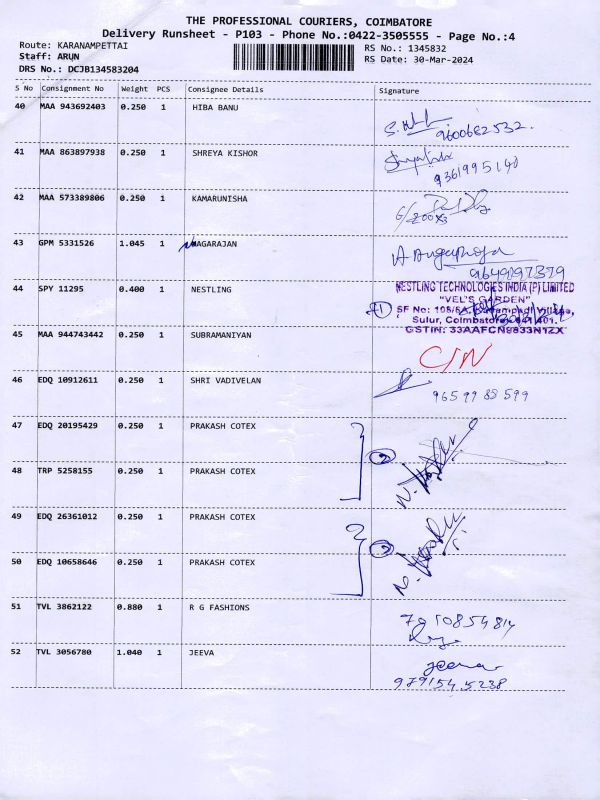 THE PROFESSIONAL COURIERS, COIMBATORE
Delivery Runsheet - P103 - Phone No.:0422-3505555 - Page No.:4
Route: KARANAMPETTAI
RS No.: 1345832
Staff: ARUN
RS Date: 30-Mar-2024
DRS No.: DCJB134583204
S No Consignment No Weight PCS Consignee Details Signature
40 MAA 943692403 0.250 1 HIBA BANU
9600682532.
41 MAA 863897938 0.250 1 SHREYA KISHOR
9361995140
42 MAA 573389806 0.250 1 KAMARUNISHA
43 GPM 5331526 1.045 1 NAGARAJAN
9649897379
44 SPY 11295 0.400 1 NESTLING
NESTLING TECHNOLOGIES INDIA (P) LIMITED
"VEL'S GARDEN"
SF No: 108/5A, Village,
Sulur, Coimbatore-641 401.
GSTIN: 33AAFCN9833N1ZX
45 MAA 944743442 0.250 1 SUBRAMANIYAN
C/N
46 EDQ 10912611 0.250 1 SHRI VADIVELAN
9659985599
47 EDQ 20195429 0.250 1 PRAKASH COTEX
2
48 TRP 5258155 0.250 1 PRAKASH COTEX
49 EDQ 26361012 0.250 1 PRAKASH COTEX
2
50 EDQ 10658646 0.250 1 PRAKASH COTEX
51 TVL 3862122 0.880 1 R G FASHIONS
7910854814
52 TVL 3056780 1.040 1 JEEVA
Jeeva
9791545238